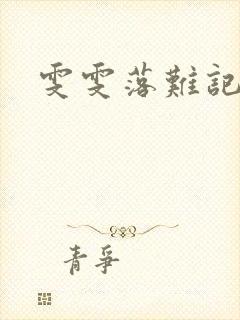 雯雯落難記
青爭